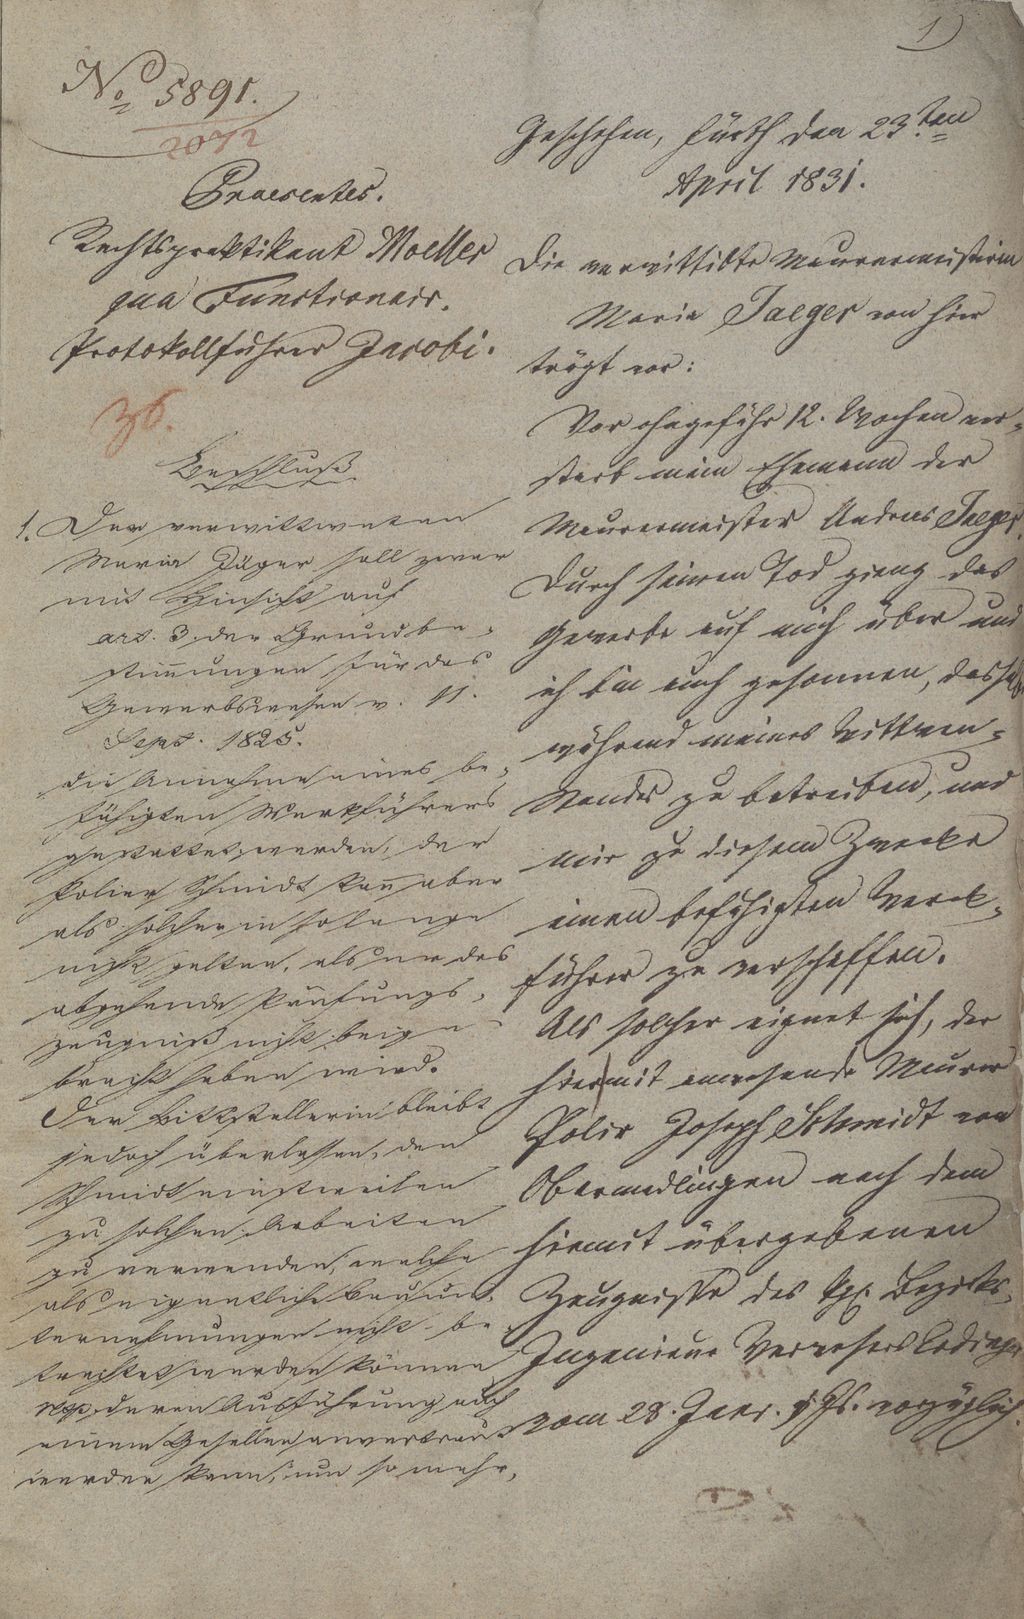 1)
No 5891.
2072
Praesentes.
Rechtspraktikant Moeller
qua Functionair.
Protokollführer Jacobi.
36.
Beschluß
1. Der verwittweten
Maria Jäger soll zwar
mit Hinsicht auf
art. 3. der Grundbe-
stimungen für das
Gewerbswesen v. 11.
Sept. 1825.
die Annahme eines be-
fähigten Werkführers
gestattet werden, der
Polier Schmidt kan aber
als solcher in so lange
nicht gelten, als er das
abgehende Prüfungs-
zeugniß nicht beige-
bracht haben wird.
Der Bittstellerin bleibt
jedoch überlassen, den
Schmidt einstweilen
zu solchen Arbeiten
zu verwenden, welche
als eigentliche Bauun-
ternehmungen nicht be-
trachtet werden können
resp. deren Ausführung auch
einem Gesellen anvertraut
werden kann, um so mehr,
Geschehen, Fürth den 23ten
April 1831.
Die verwittibte Maurermeisterin
Maria Jaeger von hier
trägt vor:
Vor ohngefähr 12. Wochen ver-
starb mein Ehemann der
Maurermeister Andreas Jaeger.
Durch seinen Tod gieng das
Gewerbe auf mich über und
ich bin auch gesonnen, dasselbe
während meines Wittwen-
standes zu betreiben, und
mir zu diesem Zwecke
einen befähigten Werk-
führer zu verschaffen.
Als solcher eignet sich, der
hiermit anwesende Maurer
Polir Joseph Schmidt von
Obermedlingen nach dem
hiemit übergebenen
Zeugnisse des kgl. Bezirks-
Ingenieur Verwesers
vom 28. Janr. d. Js. vorzüglich.